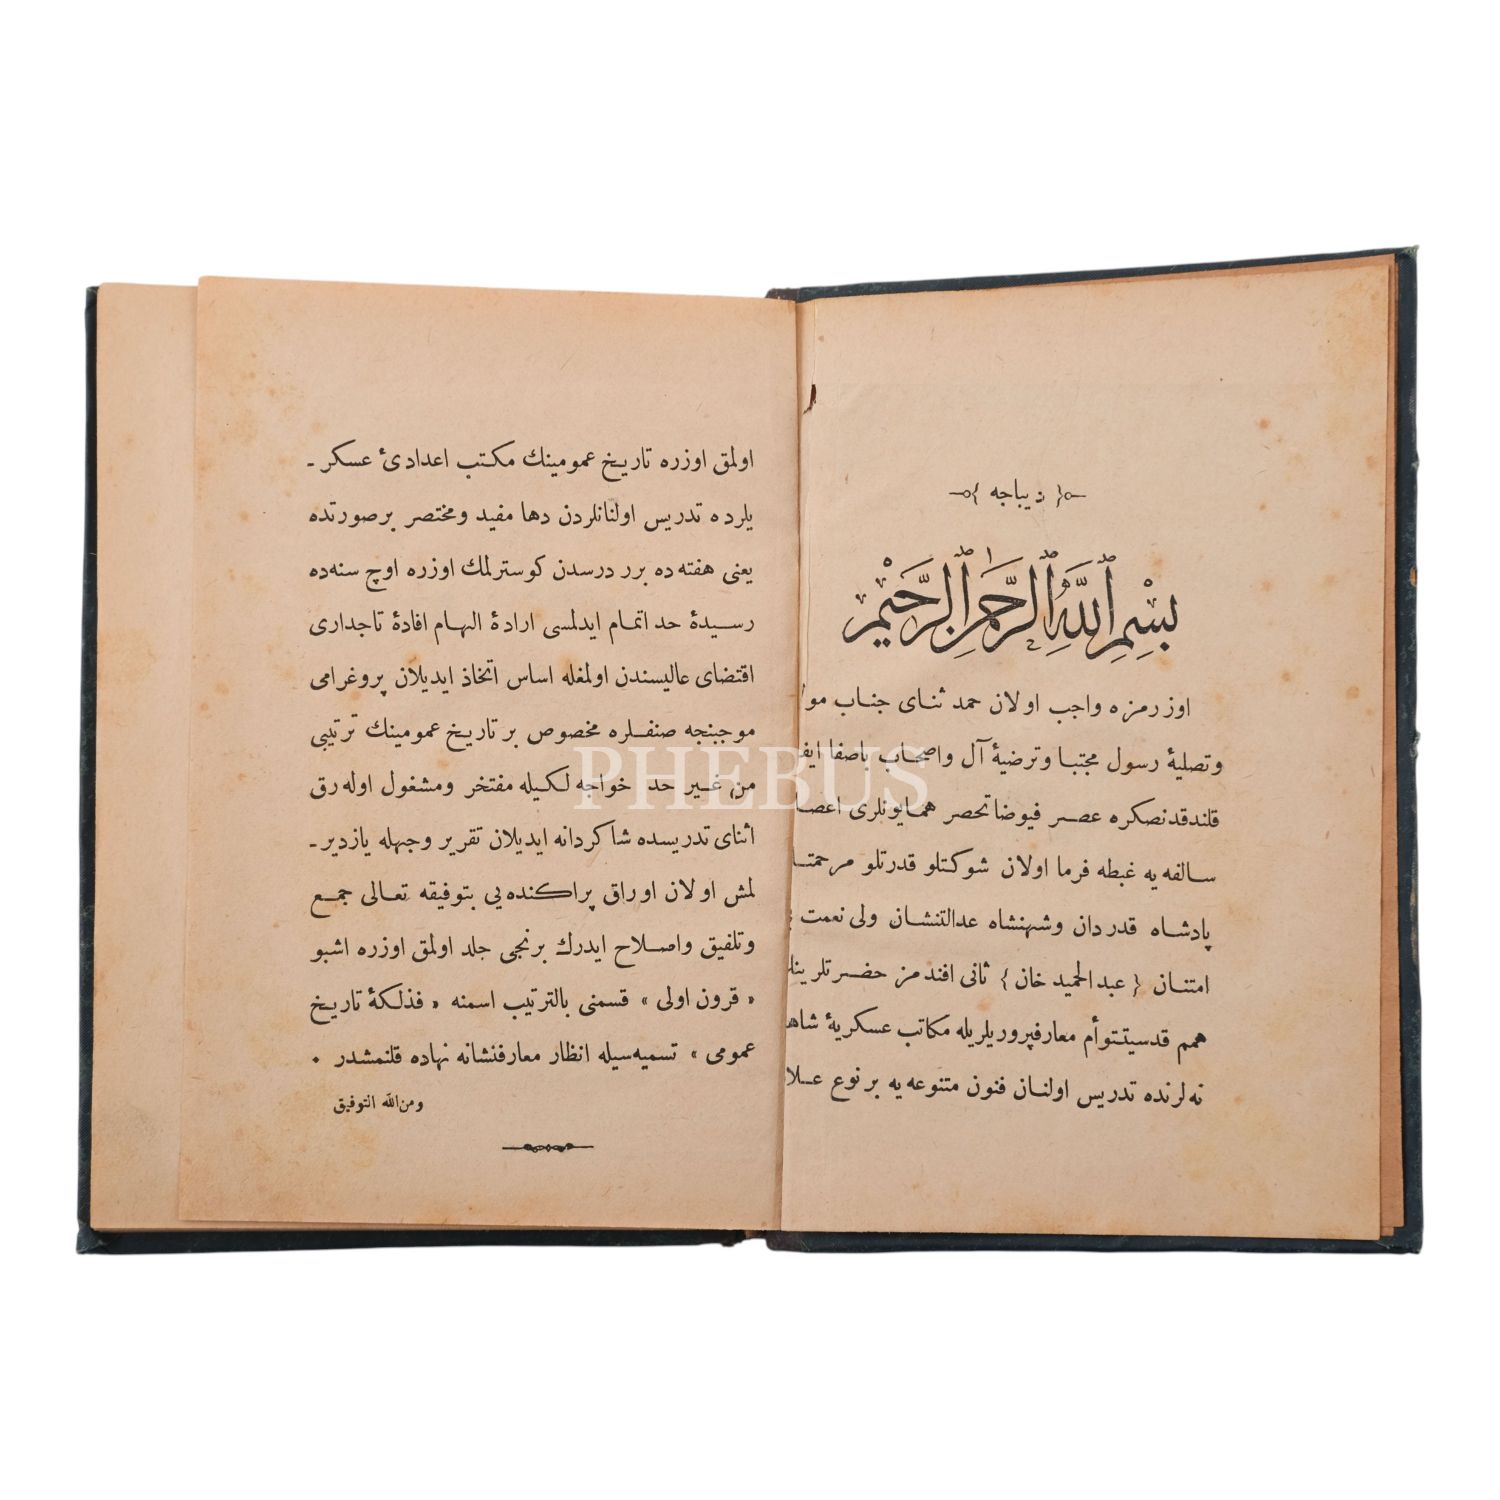 دیباجه
بِسْمِ ٱللَّهِ ٱلرَّحْمٰنِ ٱلرَّحِيْمِ
اوزرمزه واجب اولان حمد ثنای جناب
وتصلیهٔ رسول مجتبا وترضیهٔ آل واصحاب باصفا
قلندقدنصكره عصر فیوضاتحصر همایونلری
سالفه یه غبطه فرما اولان شوكتلو قدرتلو
پادشاه قدردان وشهنشاه عدالتنشان ولی نعمت
امتنان { عبدالحمید خان } ثانی افندمز
همم قدسیتتوأم معارفپروریلریله مكاتب عسكریهٔ
نه لرنده تدریس اولنان فنون متنوعه یه برنوع
اولمق اوزره تاریخ عمومینك مكتب اعدادیٔ عسكر ـ
یلرده تدریس اولنانلردن دها مفید ومختصر برصورتده
یعنی هفته ده برر درسدن كوسترلمك اوزره اوچ سنه ده
رسیدهٔ حد اتمام ایدلمسی ارادهٔ الهام افادهٔ تاجداری
اقتضای عالیسندن اولمغله اساس اتخاذ ایدیلان پروغرامی
موجبنجه صنفلره مخصوص بر تاریخ عمومینك ترتیبی
من غیر حد خواجه لكیله مفتخر ومشغول اوله رق
اثنای تدریسده شاكردانه ایدیلان تقریر وجهله یازدیر ـ
لمش اولان اوراق پراكنده یی بتوفیقه تعالی جمع
وتلفیق واصلاح ایدرك برنجی جلد اولمق اوزره اشبو
« قرون اولی » قسمنی بالترتیب اسمنه « فذلكهٔ تاریخ
عمومی » تسمیه سیله انظار معارفنشانه نهاده قلنمشدر ۰
ومن الله التوفیق
PHEBUS